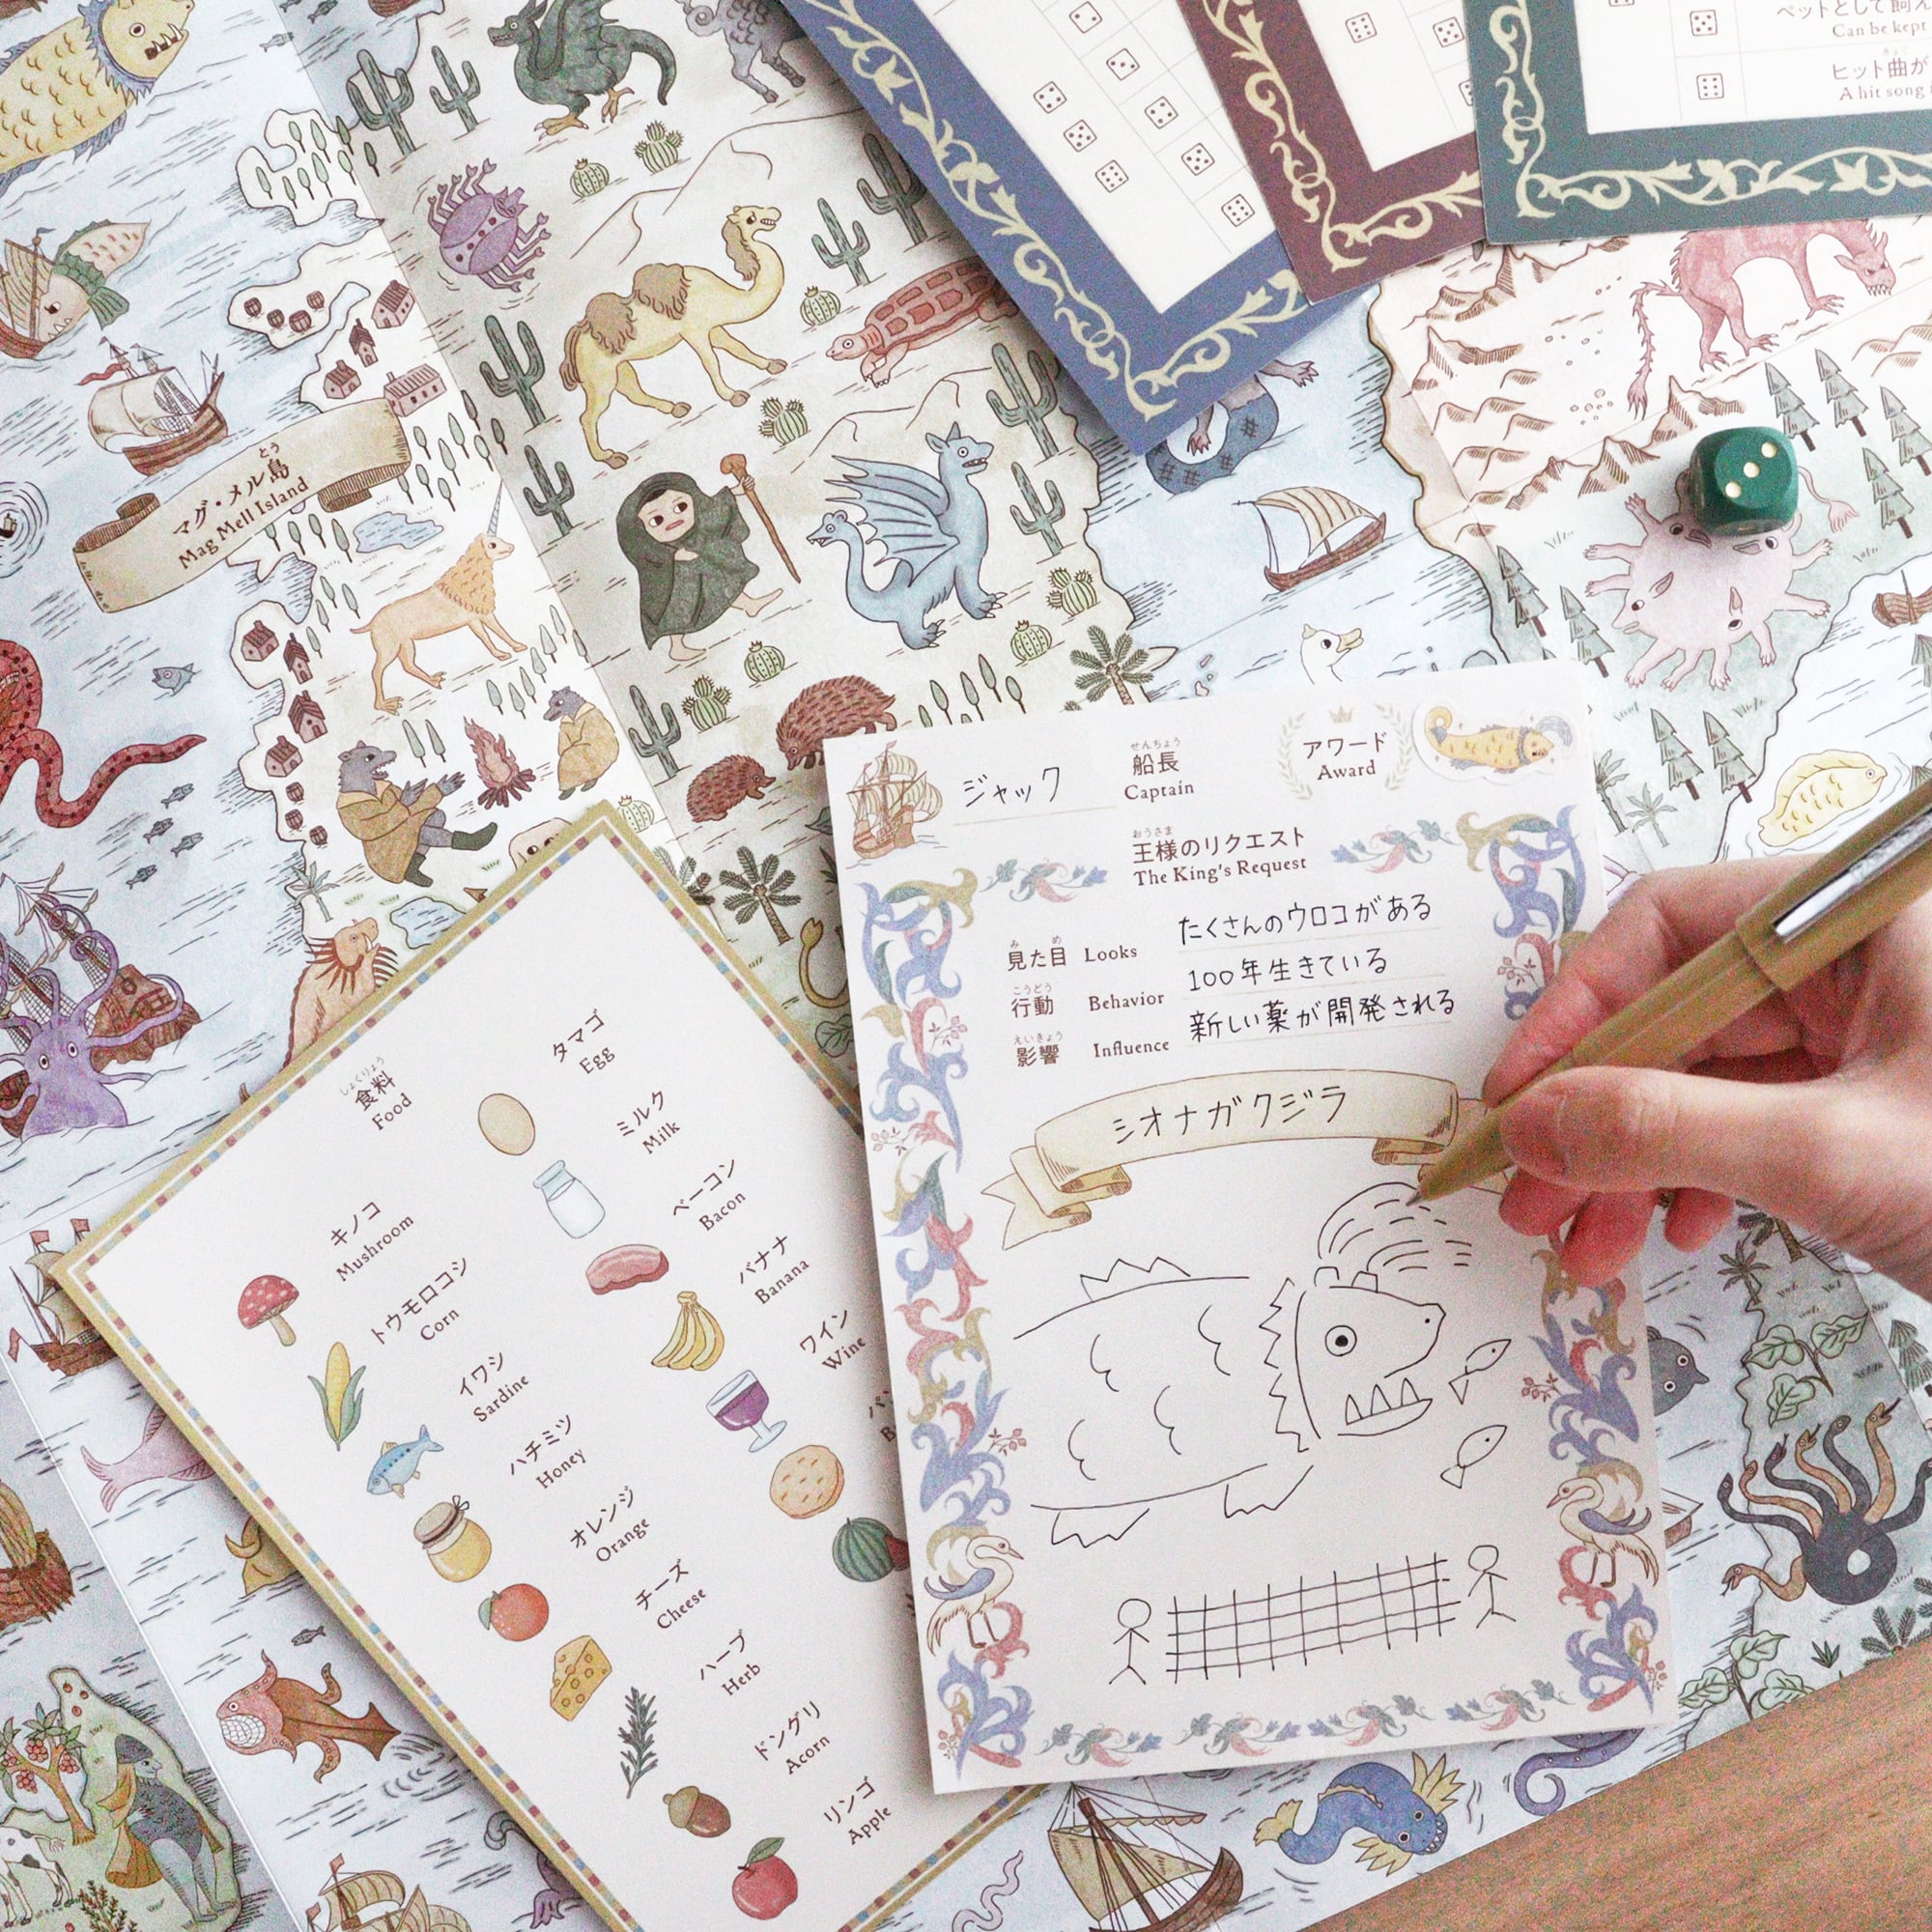 ペットとして飼え
Can be kept
きょく
ヒット曲が
A hit song
とう
マグ・メル島
Mag Mell Island
ジャック
せんちょう
船長
Captain
アワード
Award
おうさま
王様のリクエスト
The King's Request
み め
見た目 Looks たくさんのウロコがある
こうどう
行動 Behavior 100年生きている
えいきょう
影響 Influence 新しい薬が開発される
シオナガクジラ
しょくりょう
食料
Food
キノコ
Mushroom
トウモロコシ
Corn
イワシ
Sardine
ハチミツ
Honey
オレンジ
Orange
チーズ
Cheese
ハーブ
Herb
ドングリ
Acorn
リンゴ
Apple
タマゴ
Egg
ミルク
Milk
ベーコン
Bacon
バナナ
Banana
ワイン
Wine